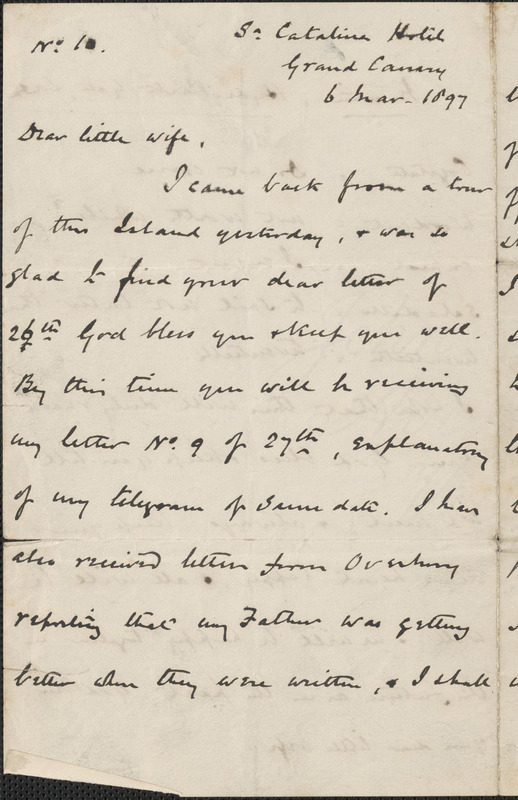 No. 10.
Sa. Catalina Hotel
Grand Canary
6 Mar. 1897
Dear little wife,
I came back from a tour
of this Island yesterday, & was so
glad to find your dear letter of
26th God bless you & keep you well.
By this time you will be receiving
my letter No. 9 of 27th, explanatory
of my telegram of same date. I have
also received letters from Overbury
reporting that my Father was getting
better when they were written, & I shall